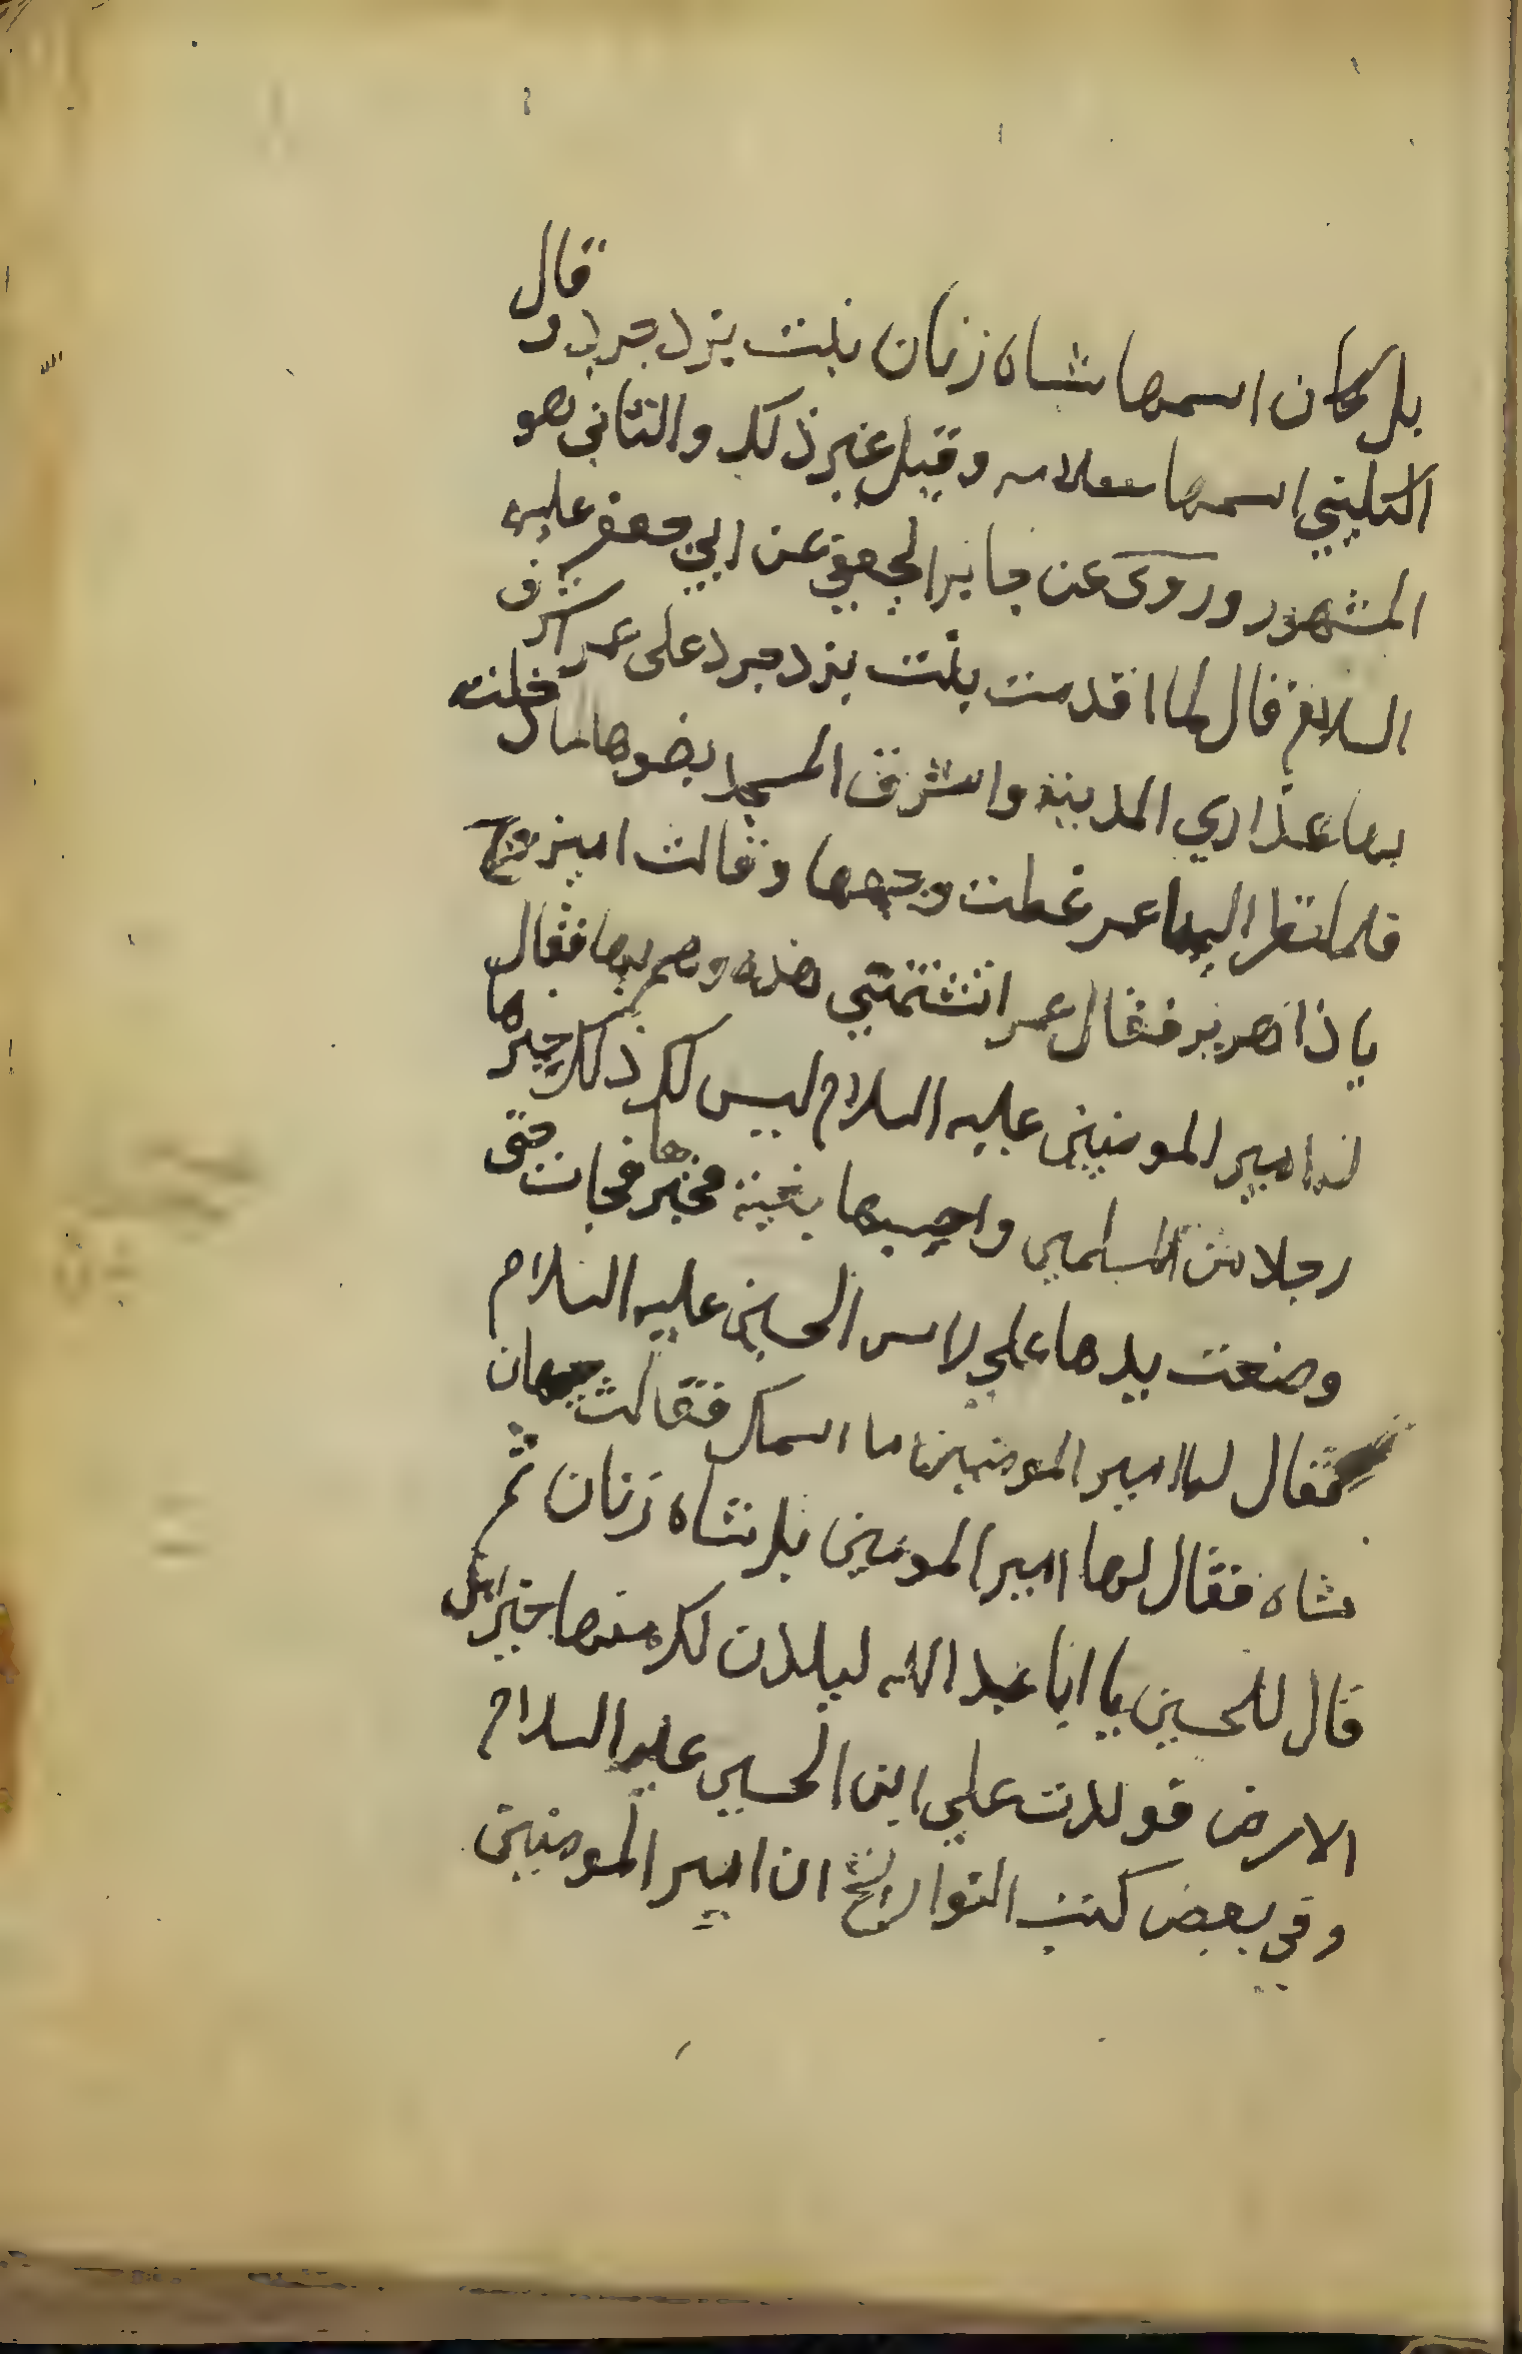 بل كان اسمها شاه زنان بنت يزدجرد و قال
الكليني اسمها سلامه وقيل غير ذلك والثاني هو
المشهور وروى عن جابر الجعفي عن ابي جعفر عليه
السلام قال لما اقدمت بنت يزدجرد على عمر اشرف
بها عذاري المدينة واشرف المسجد بضوءها لما دخلته
فلما نظر اليها عمر غطت وجهها وقالت
يا ذا فقال عمر اتشتمني هذه وهم بها فقال
له امير المومنين عليه السلام ليس لك ذلك خيرها
رجلا من المسلمين واحسبها بفيئه فخيرها فجات حتى
وضعت يدها على راس الحسين عليه السلام
فقال لها امير المومنين ما اسمك فقالت جهان
شاه فقال لها امير المومنين بل شاه زنان ثم
قال للحسين يا ابا عبد الله ليلدن لك منها خير اهل
الارض فولدت علي ابن الحسين عليه السلام
وفي بعض كتب التواريخ ان امير المومنين